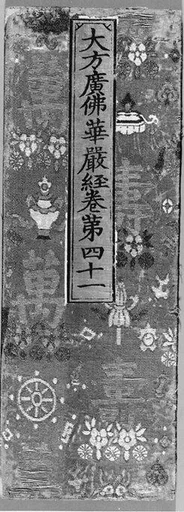 大方廣佛華嚴經卷第四十一
萬
壽